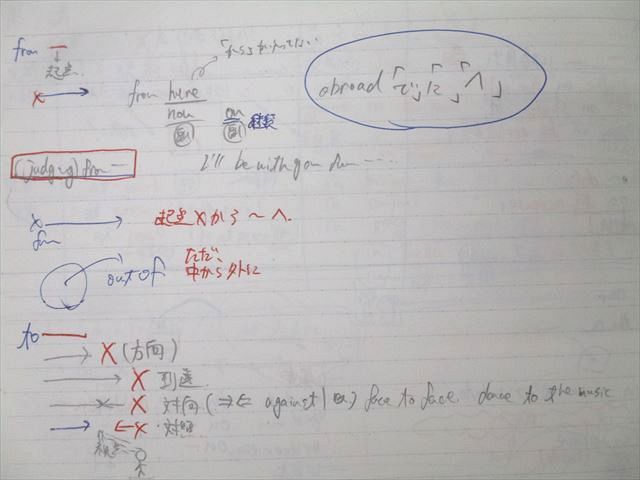 from
起点
from here
now on
副 副 継続
abroad 「で」「に」「へ」
(judging) from …
I'll be with you from ….
from
起点 X から 〜 へ.
out of
ただ、
中から外に
to
X (方向)
X 到達
X 対向 ( against ) face to face. dance to the music
X 対照